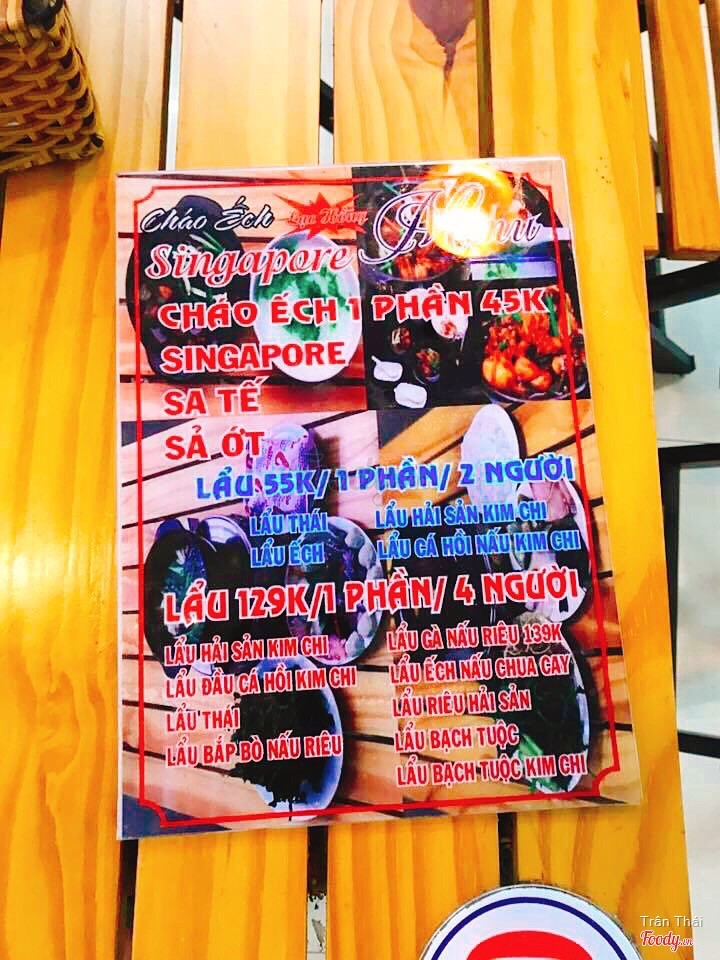 Cháo Ếch Lạc Hồng Menu
Singapore
CHÁO ẾCH 1 PHẦN 45K
SINGAPORE
SA TẾ
SẢ ỚT
LẨU 55K/ 1 PHẦN/ 2 NGƯỜI
LẨU THÁI
LẨU ẾCH
LẨU HẢI SẢN KIM CHI
LẨU CÁ HỒI NẤU KIM CHI
LẨU 129K/1 PHẦN/ 4 NGƯỜI
LẨU HẢI SẢN KIM CHI
LẨU ĐẦU CÁ HỒI KIM CHI
LẨU THÁI
LẨU BẮP BÒ NẤU RIÊU
LẨU GÀ NẤU RIÊU 139K
LẨU ẾCH NẤU CHUA CAY
LẨU RIÊU HẢI SẢN
LẨU BẠCH TUỘC
LẨU BẠCH TUỘC KIM CHI
Trân Thái
Foody.vn